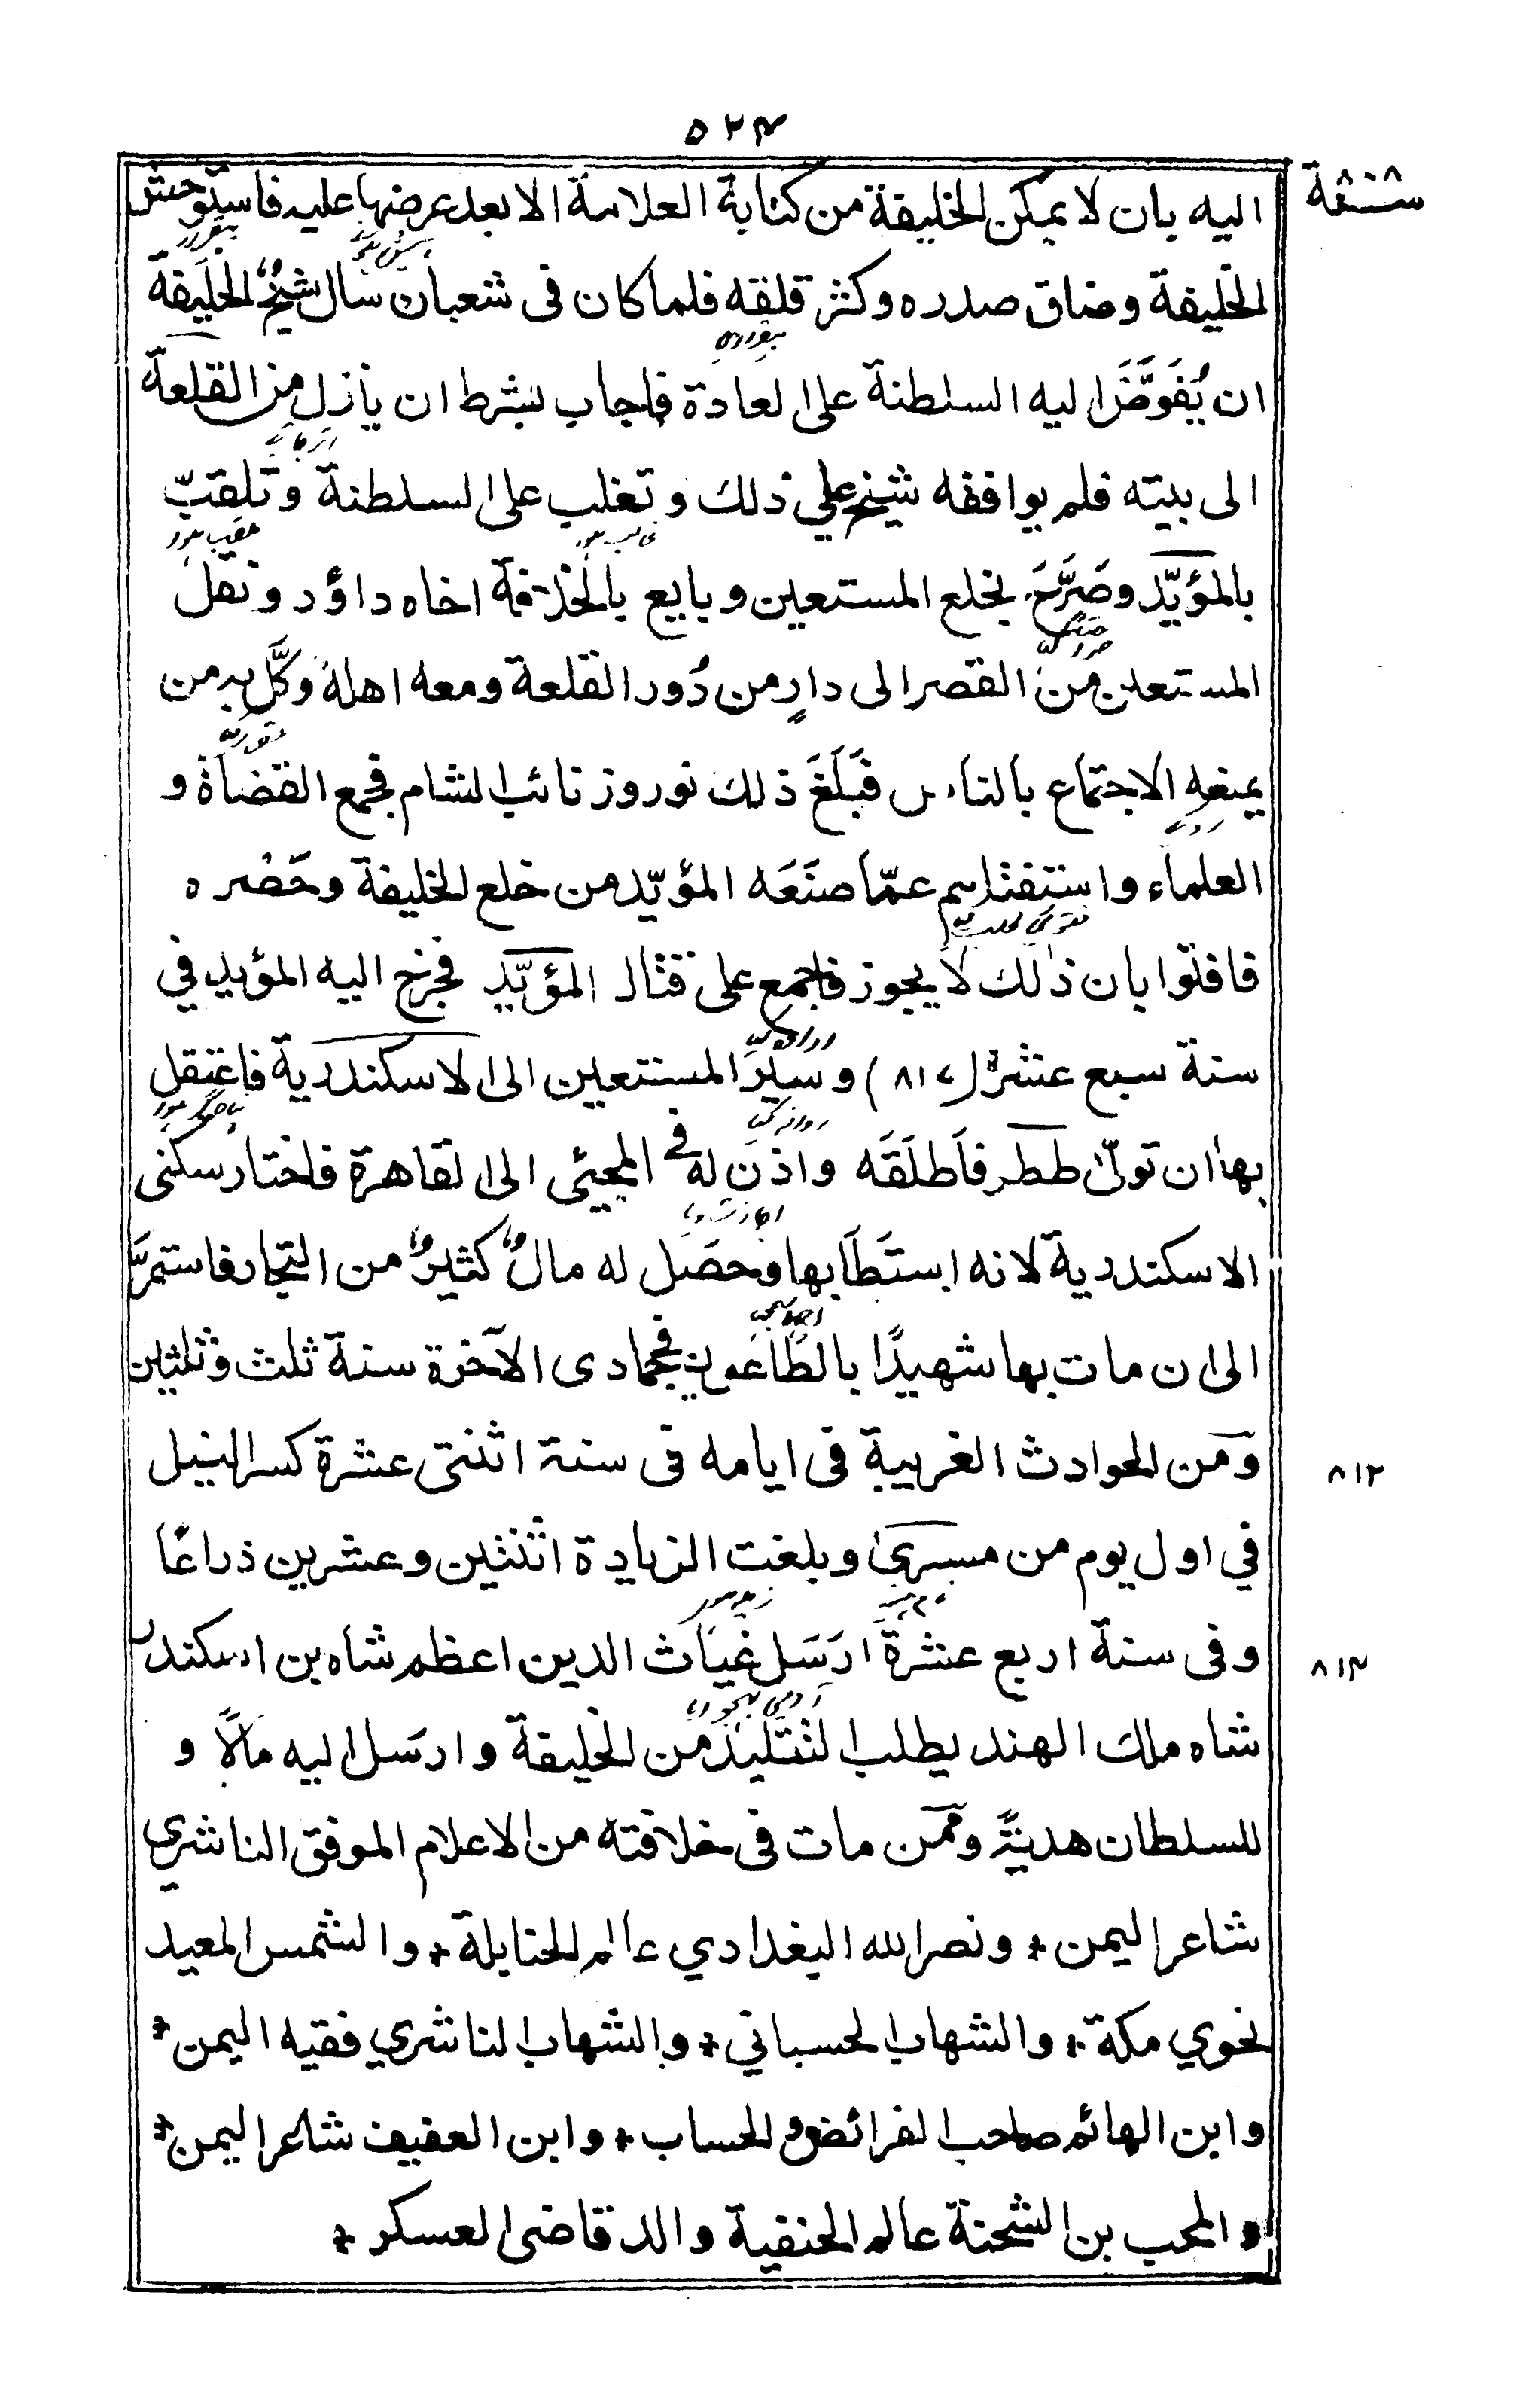 ٥٢٤
اليه بان لا يمكن الخليفة من كتابة العلامة الا بعد عرضها عليه فاستوحش
الخليفة وضاق صدره وكثر قلقه فلما كان فى شعبان سال شيخٌ الخليفة
ان يُفَوَّضَ اليه السلطنة على العادة فاجاب بشرط ان ينزل من القلعة
الى بيته فلم يوافقه شيخ علي ذلك و تغلب على السلطنة و تلقبّ
بالمؤيّد وصَرَّحَ بخلع المستعين و بايع بالخلافة اخاه داؤد ونقل
المستعين من القصر الى دارٍ من دُور القلعة ومعه اهلهٗ وكَّل به من
يمنعه الاجتماع بالناس فبَلَغَ ذلك نوروز نائب الشام فجمع القضاة و
العلماء واستفتاهم عمّا صنَعَه المؤيّد من خلع الخليفة وحَصْره
فافتوا بان ذلك لا يجوز فاجمع على قتال المؤيّد فخرج اليه المؤيد في
سنة سبع عشرة (٨١٧) و سير المستعين الى الاسكندرية فاعتقل
بها ان تولّى ططر فاَطلَقَه واذن له فى المجيئ الى القاهرة فاختار سكنى
الاسكندرية لانه استَطَابها وحصَل له مالٌ كثيرٌ من التجار فاستمرَّ
الى ان مات بها شهيدًا بالطاعون فى جمادى الآخرة سنة ثلث وثلثين
ومن الحوادث الغريبة فى ايامه فى سنة اثنتى عشرة كسر النيل
٨١٢
في اول يوم من مسرىٰ و بلغت الزيادة اثنتين وعشرين ذراعًا
وفى سنة اربع عشرة ارسَل غياث الدين اعظم شاه بن اسكندر
٨١٤
شاه ملك الهند يطلب التقليد من الخليفة وارسَل اليه مالًا و
للسلطان هديةً وممن مات فى خلافته من الاعلام الموفق الناشري
شاعر اليمن * ونصر الله البغدادي عالم الحنابلة * والشمس المعيد
نحوي مكة * والشهاب الحسباني * والشهاب الناشري فقيه اليمن *
وابن الهائم صاحب الفرائض و الحساب * وابن العفيف شاعر اليمن *
و المحب بن الشحنة عالم الحنفية والد قاضى العسكر *